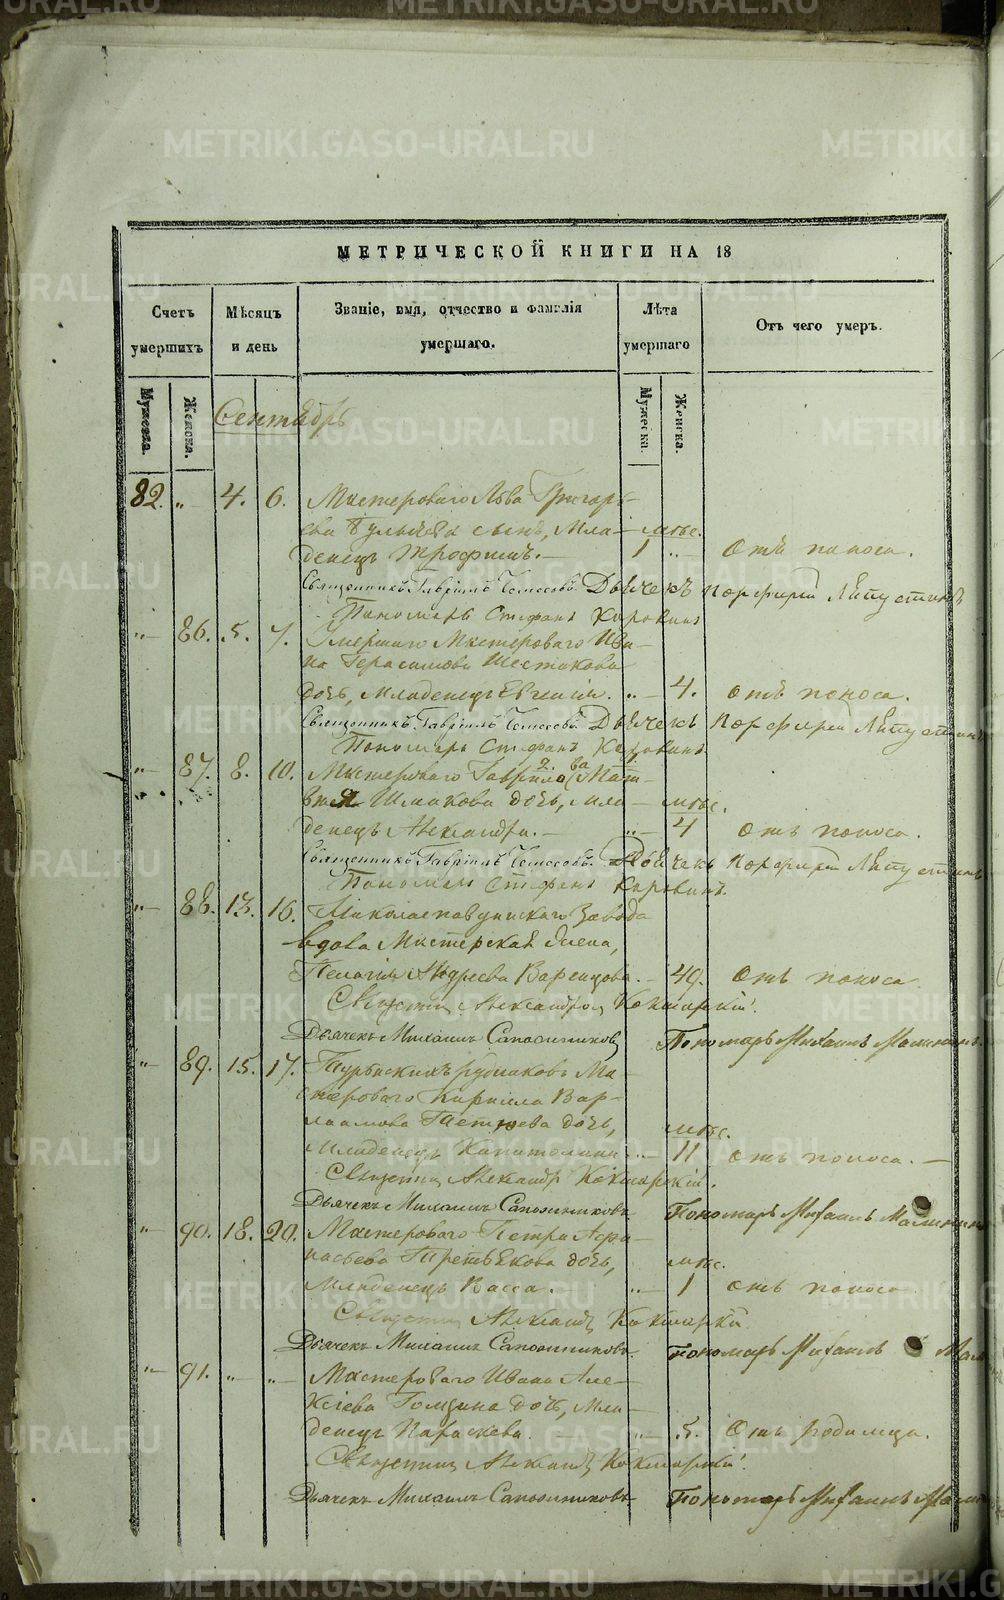 МЕТРИЧЕСКОЙ КНИГИ НА 18
Счетъ умершихъ
Мѣсяцъ и день
Званіе, имя, отчество и фамилія умершаго.
Лѣта умершаго
Отъ чего умеръ.
Мужеска. Женска.
Мужеска. Женска.
Сентябрь
82. „ 4. 6. Мастероваго Льва Григорь-
ева сынъ, мла- мѣс.
денецъ Трофимъ. 1 „ отъ поноса.
Священникъ Гавріилъ Дьячекъ Порфирій
Пономарь Стефанъ Коровинъ
„ 86. 5. 7. Умершаго Мастероваго Ива-
на Герасимова Шестакова
дочь, младенецъ Евгенія. „ 4. отъ поноса.
Священникъ Гавріилъ Дьячекъ Порфирій
Пономарь Стефанъ Коровинъ
„ 87. 8. 10. Мастероваго Гаврилова Мат-
вія Шмакова дочь, мла- мѣс.
денецъ Александра. „ 4 отъ поноса.
Священникъ Гавріилъ Дьячекъ Порфирій
Пономарь Стефанъ Коровинъ.
„ 88. 13. 16. Николаепавдинскаго Завода
вдова Мастерская жена,
Пелагія Андреева Варенцова. 49. отъ поноса
Священникъ Александръ Кокшарскій.
Дьячекъ Михаилъ Сапожниковъ Пономарь Михаилъ Малининъ
„ 89. 15. 17. Турьинскихъ рудниковъ Ма-
стероваго Кирилла Вар-
лаамова дочь, мѣс.
младенецъ Капитолина „ 11 отъ поноса.
Священникъ Александръ Кокшарскій.
Дьячекъ Михаилъ Сапожниковъ Пономарь Михаилъ Малининъ
„ 90. 18. 20. Мастероваго Петра Афа-
насьева Третьякова дочь, мѣс.
младенецъ Васса. „ 1 отъ поноса.
Священникъ Александръ Кокшарскій
Дьячекъ Михаилъ Сапожниковъ. Пономарь Михаилъ
„ 91. „ „ Мастероваго Ивана Але-
ксіева Гомзина дочь, мла-
денецъ Параскева. „ 5. Отъ родимца.
Священникъ Александръ Кокшарскій.
Дьячекъ Михаилъ Сапожниковъ Пономарь Михаилъ
METRIKI.GASO-URAL.RU